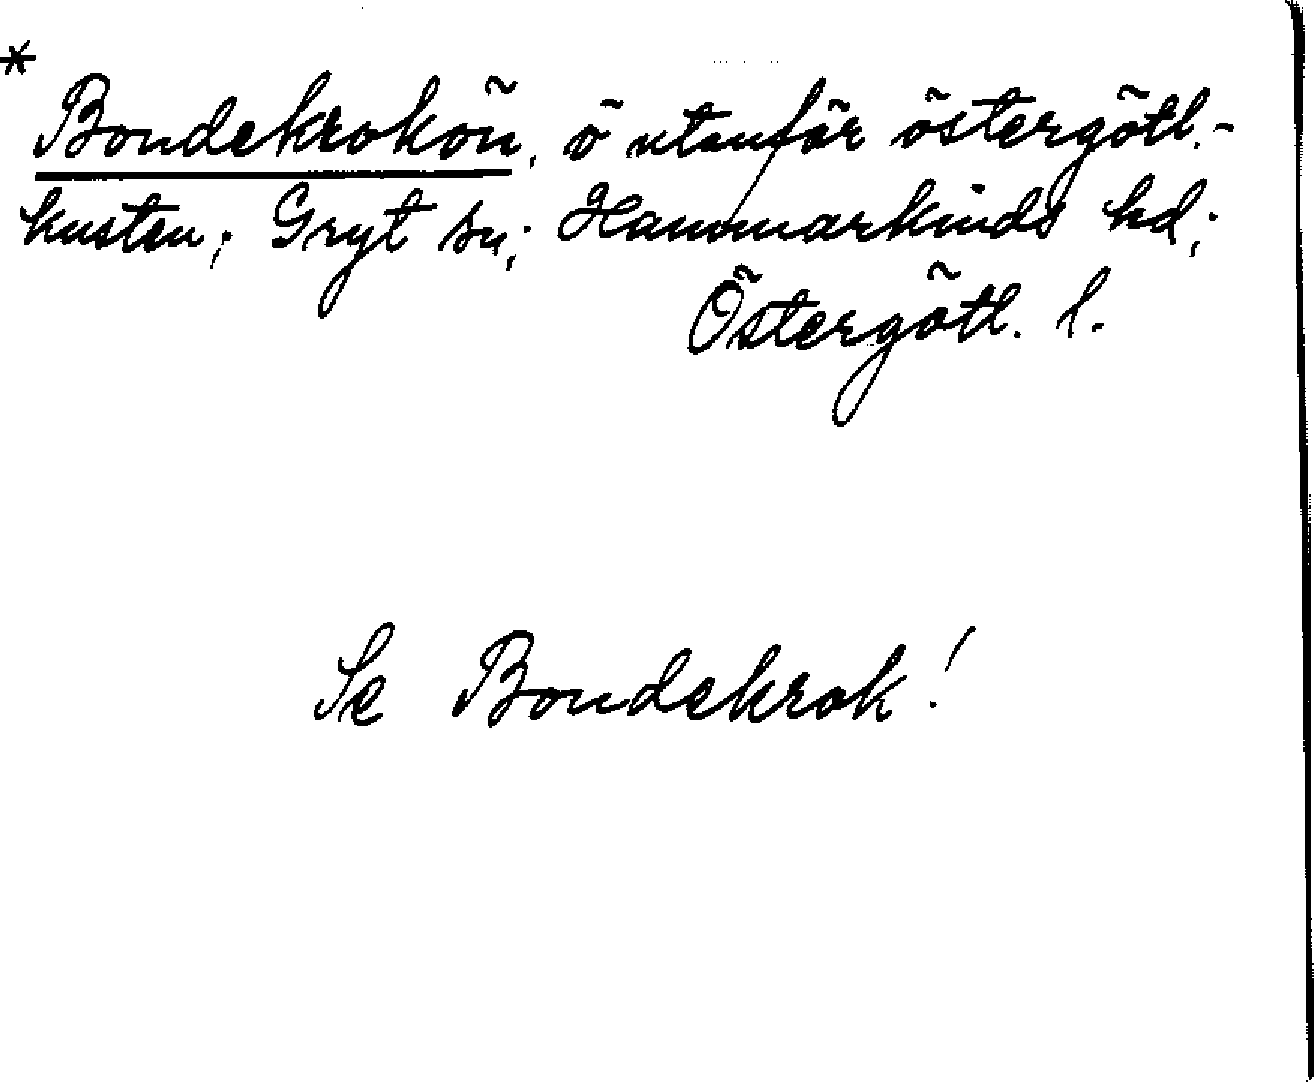 * Bondekrokön, ö utanför östergötl.-
kusten; Gryt sn; Hammarkinds hd;
Östergötl. l.
Se Bondekrok!